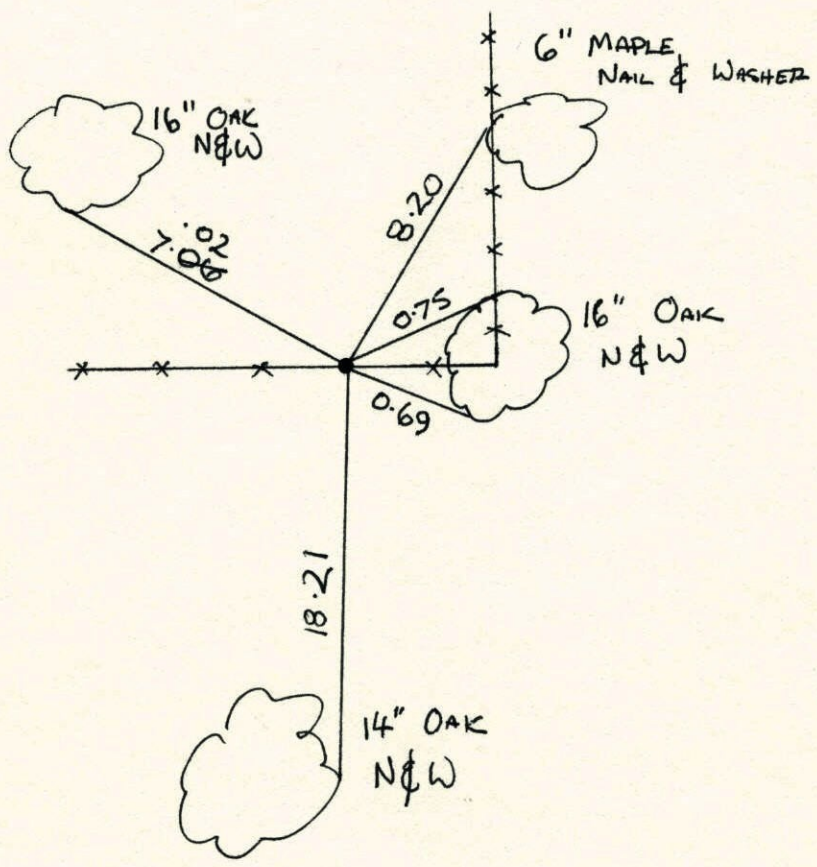 6" MAPLE
NAIL & WASHER
16" OAK
N&W
.02
7.06
8.20
0.75
16" OAK
N&W
0.69
18.21
14" OAK
N&W